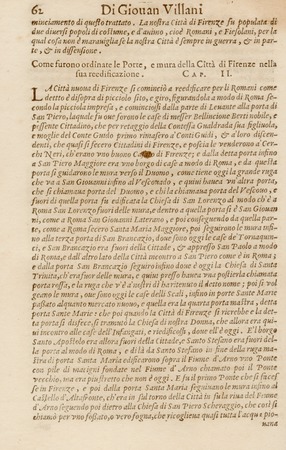 62 Di Giovan Villani
minciamento di questo trattato. La nostra Città di Firenze fu populata di
due diversi popoli di costume, e d'animo, cioè Romani, e Fiesolani, per la
qual cosa non è maraviglia se la nostra Città è sempre in guerra, & in par-
te, & in dissensione.
Come furono ordinate le Porte, e mura della Città di Firenze nella
sua reedificazione. CAP. II.
LA Città nuova di Firenze si cominciò a reedificare per li Romani come
detto è dinanzi di picciolo sito, e giro, figurandola a modo di Roma se-
condo la piccola impresa, e cominciossi dalla parte di Levante alla porta di
San Piero, laquale fu ove sono le case di messer Bellincione Berti nobile, e
possente Cittadino, che per retaggio della Contessa Gualdrada sua figliuola,
e moglie del Conte Guido primo rimasero a Conti Guidi, & a loro discen-
denti, che quasi si feciono Cittadini di Firenze, e poscia le venderono a Cer-
chi Neri, ch' erano uno buono Casato di Firenze; e dalla detta porta infino
a San Piero Maggiore era uno borgo di case a modo di Roma, e da questa
porta si guidarono le mura verso il Duomo, come tiene oggi la gronda ruga
che va a San Giovanni infino al Vescovado, e quivi haueva un' altra porta,
che si chiamava porta del Duomo, e chi la chiamava porta del Vescovo, e
fuori di quella porta fu edificata la Chiesa di San Lorenzo al modo ch'è a
Roma San Lorenzo fuori delle mura, e dentro a quella porta si è San Giovan
ni, come a Roma San Giovanni Laterano, e poi conseguendo da quella par-
te, come a Roma fecero Santa Maria Maggiore, poi seguirono le mura infi-
no alla terza porta di San Brancazio, dove sono oggi le case de' Tornaquin-
ci, e San Brancazio era fuori della Cittade, & appresso San Paolo a modo
di Roma, e dall'altro lato della Città incontro a San Piero come è in Roma;
e dalla detta porta San Brancazio seguirono dove è oggi la Chiesa di Santa
Trinita, ch'era fuor delle mura, e quivi presso haueva una postierla chiamata
porta rossa, e la ruga che v'è a nostri dì hà ritenuto il detto nome; poi si vol
geano le mura, ove sono oggi le case delli Scali, infino in porte Sante Marie
passato alquanto mercato nuovo, e quella era la quarta porta mastra, detta
porta Sante Marie: che poi quando la Città di Firenze si ricrebbe e la det-
ta porta si disfece, si tramutò la Chiesa di nostra Donna, che allora era qui-
vi incontro alle case dell'Infangati, e riedificossi, dove ell'è oggi. E'l borgo
Santo Apostolo era allora fuori della Cittade, e Santo Stefano era fuori del-
la porta al modo di Roma, e di là da Santo Stefano in fine della ruga mae-
stra di porta Santa Maria edificarono sopra il Fiume d'Arno uno Ponte
con pile di macigni fondate nel Fiume d'Arno chiamato poi il Ponte
vecchio, ma era piustretto che non è oggi. E fu il primo Ponte che si facesse
se in Firenze, e poi dalla porta Santa Maria seguivano le mura infino al
Castello d'Altafronte, ch'era in sul torno della Città in sulla riva del Fiume
d'Arno seguendo poi dietro alla Chiesa di San Piero Scheraggio, che così si
chiamò per uno fossato, o vero fogna, che ricoglieva quasi tutta l'acqua pio-
uana